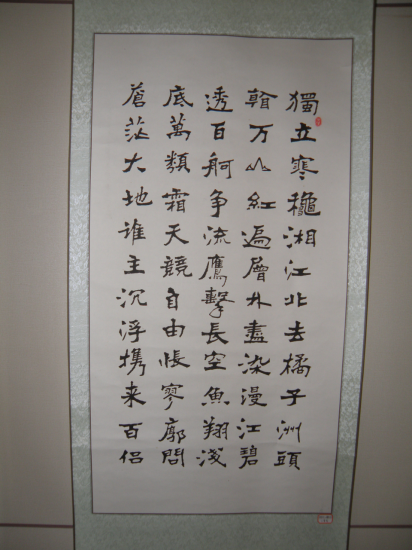 獨立寒穐湘江北去橘子洲頭
看万山紅遍層林盡染漫江碧
透百舸争流鷹擊長空魚翔淺
底萬類霜天競自由悵寥廓問
蒼茫大地誰主沉浮携来百侣